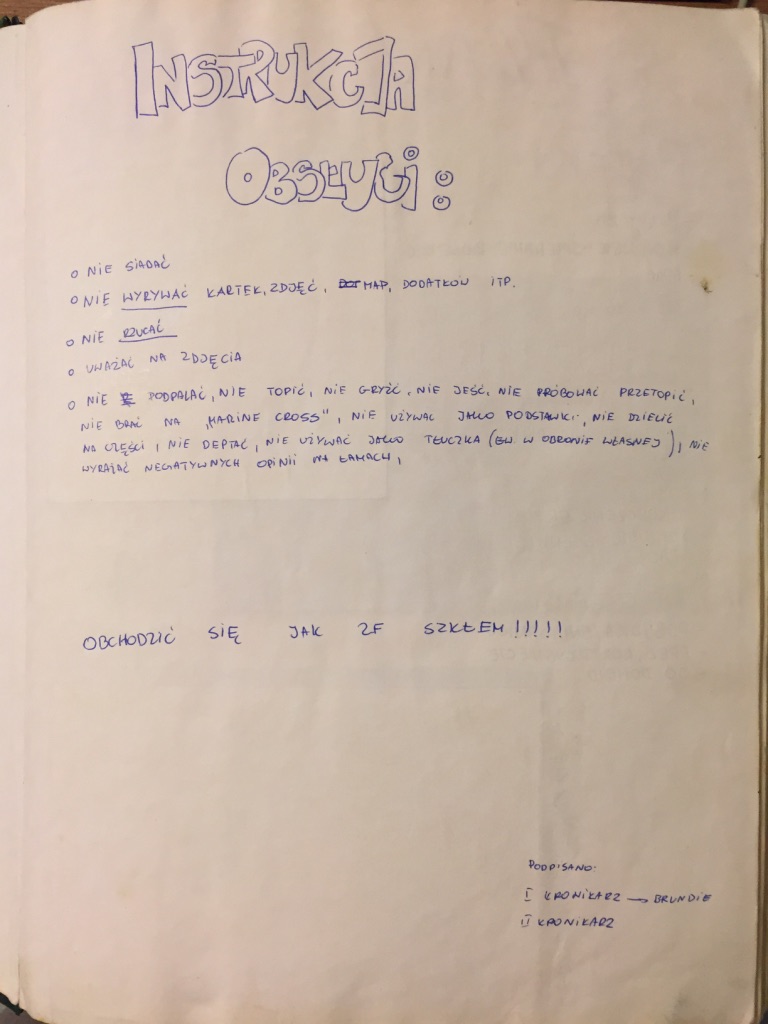 INSTRUKCJA
OBSŁUGI:
o NIE SIADAĆ
o NIE WYRYWAĆ KARTEK, ZDJĘĆ, MAP, DODATKÓW ITP.
o NIE RZUCAĆ
o UWAŻAĆ NA ZDJĘCIA
o NIE PODPALAĆ, NIE TOPIĆ, NIE GRYŹĆ, NIE JEŚĆ, NIE PRÓBOWAĆ PRZETOPIĆ,
NIE BRAĆ NA „MARINE CROSS", NIE UŻYWAĆ JAKO PODSTAWKI, NIE DZIELIĆ
NA CZĘŚCI, NIE DEPTAĆ, NIE UŻYWAĆ JAKO TŁUCZKA (EW. W OBRONIE WŁASNEJ), NIE
WYRAŻAĆ NEGATYWNYCH OPINII NA ŁAMACH,
OBCHODZIĆ SIĘ JAK ZE SZKŁEM!!!!!
PODPISANO:
I KRONIKARZ → BRUNDIE
II KRONIKARZ